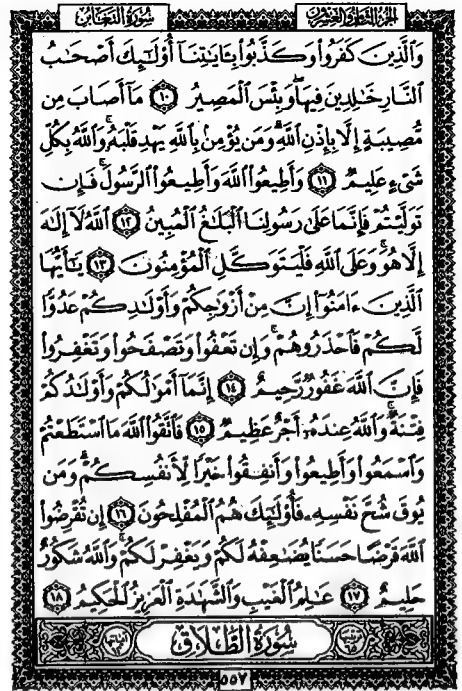 سُورَةُ التَّغَابُنِ الجُزءُ الثَّامِنُ وَالعِشرُونَ
وَٱلَّذِينَ كَفَرُوا۟ وَكَذَّبُوا۟ بِـَٔايَـٰتِنَآ أُو۟لَـٰٓئِكَ أَصْحَـٰبُ
ٱلنَّارِ خَـٰلِدِينَ فِيهَا ۖ وَبِئْسَ ٱلْمَصِيرُ ١٠ مَآ أَصَابَ مِن
مُّصِيبَةٍ إِلَّا بِإِذْنِ ٱللَّهِ ۗ وَمَن يُؤْمِنۢ بِٱللَّهِ يَهْدِ قَلْبَهُۥ ۚ وَٱللَّهُ بِكُلِّ
شَىْءٍ عَلِيمٌ ١١ وَأَطِيعُوا۟ ٱللَّهَ وَأَطِيعُوا۟ ٱلرَّسُولَ ۚ فَإِن
تَوَلَّيْتُمْ فَإِنَّمَا عَلَىٰ رَسُولِنَا ٱلْبَلَـٰغُ ٱلْمُبِينُ ١٢ ٱللَّهُ لَآ إِلَـٰهَ
إِلَّا هُوَ ۚ وَعَلَى ٱللَّهِ فَلْيَتَوَكَّلِ ٱلْمُؤْمِنُونَ ١٣ يَـٰٓأَيُّهَا
ٱلَّذِينَ ءَامَنُوٓا۟ إِنَّ مِنْ أَزْوَٰجِكُمْ وَأَوْلَـٰدِكُمْ عَدُوًّا
لَّكُمْ فَٱحْذَرُوهُمْ ۚ وَإِن تَعْفُوا۟ وَتَصْفَحُوا۟ وَتَغْفِرُوا۟
فَإِنَّ ٱللَّهَ غَفُورٌ رَّحِيمٌ ١٤ إِنَّمَآ أَمْوَٰلُكُمْ وَأَوْلَـٰدُكُمْ
فِتْنَةٌ ۚ وَٱللَّهُ عِندَهُۥٓ أَجْرٌ عَظِيمٌ ١٥ فَٱتَّقُوا۟ ٱللَّهَ مَا ٱسْتَطَعْتُمْ
وَٱسْمَعُوا۟ وَأَطِيعُوا۟ وَأَنفِقُوا۟ خَيْرًا لِّأَنفُسِكُمْ ۗ وَمَن
يُوقَ شُحَّ نَفْسِهِۦ فَأُو۟لَـٰٓئِكَ هُمُ ٱلْمُفْلِحُونَ ١٦ إِن تُقْرِضُوا۟
ٱللَّهَ قَرْضًا حَسَنًا يُضَـٰعِفْهُ لَكُمْ وَيَغْفِرْ لَكُمْ ۚ وَٱللَّهُ شَكُورٌ
حَلِيمٌ ١٧ عَـٰلِمُ ٱلْغَيْبِ وَٱلشَّهَـٰدَةِ ٱلْعَزِيزُ ٱلْحَكِيمُ ١٨
سُورَةُ الطَّلَاقِ
٥٥٧